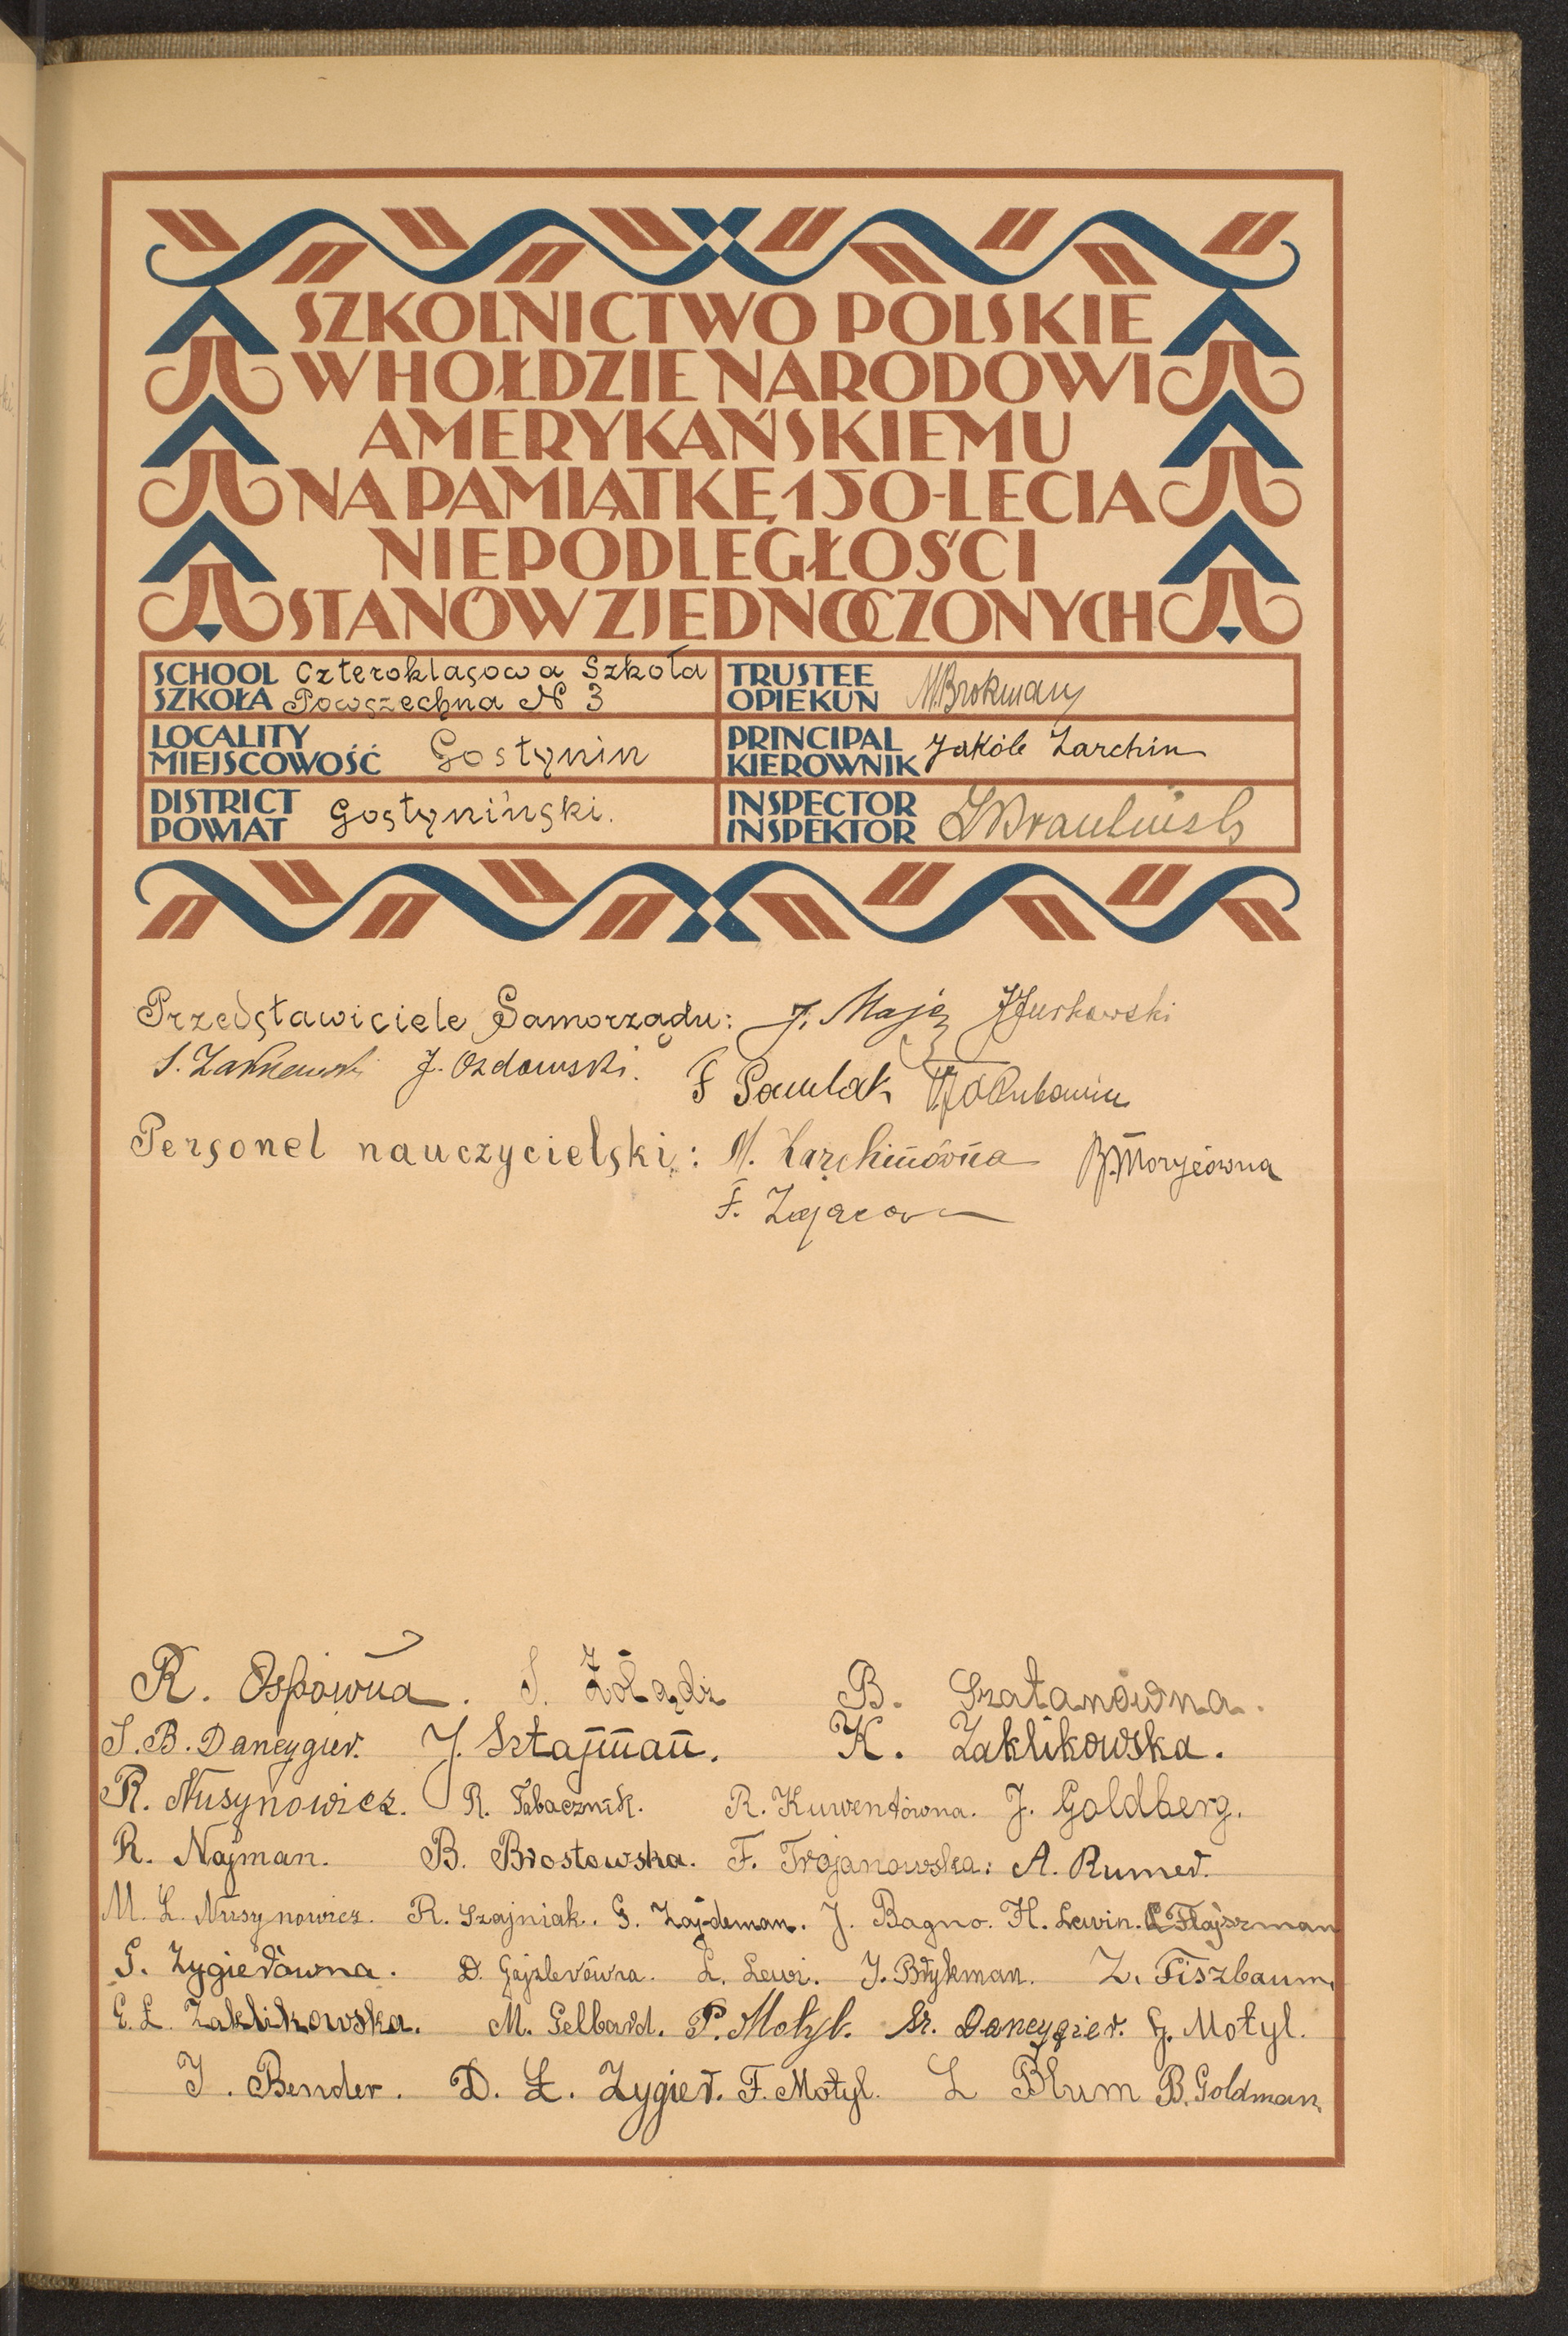 SZKOLNICTWO POLSKIE
W HOŁDZIE NARODOWI
AMERYKAŃSKIEMU
NA PAMIĄTKĘ 150-LECIA
NIEPODLEGŁOŚCI
STANÓW ZJEDNOCZONYCH
SCHOOL Czteroklasowa Szkoła
SZKOŁA Powszechna N 3
TRUSTEE
OPIEKUN M. Brokman
LOCALITY
MIEJSCOWOŚĆ Gostynin
PRINCIPAL
KIEROWNIK Jakób Zarchin
DISTRICT
POWIAT Gostyniński.
INSPECTOR
INSPEKTOR
Przedstawiciele Samorządu: J. Majez J Jurkowski
J. Ozdowski. F Pawlak
Personel nauczycielski: M. Zarchinówna B. Moryćówna
F. Zającowa
R. Ospówna. S. Żołądź B. Szatanówna.
S. B. Dancygier. J. Sztajman. K. Zaklikowska.
R. Nusynowicz. R. Tabacznik. R. Kuwentówna. J. Goldberg.
R. Najman. B. Brostowska. F. Trojanowska. A. Rumer.
M. L. Nusynowicz. R. Szajniak. G. Zajdeman. J. Bagno. H. Lewin. Flajszman
G. Zygierówna. D. Gajzlerówna. L. Lewi. J. Brykman. Z. Fiszbaum.
G. L. Zaklikowska. M. Gelbard. P. Motyl. Sz. Dancygier. G. Motyl.
J. Bender. D. Ł. Zygier. F. Motyl. L Blum B. Goldman.